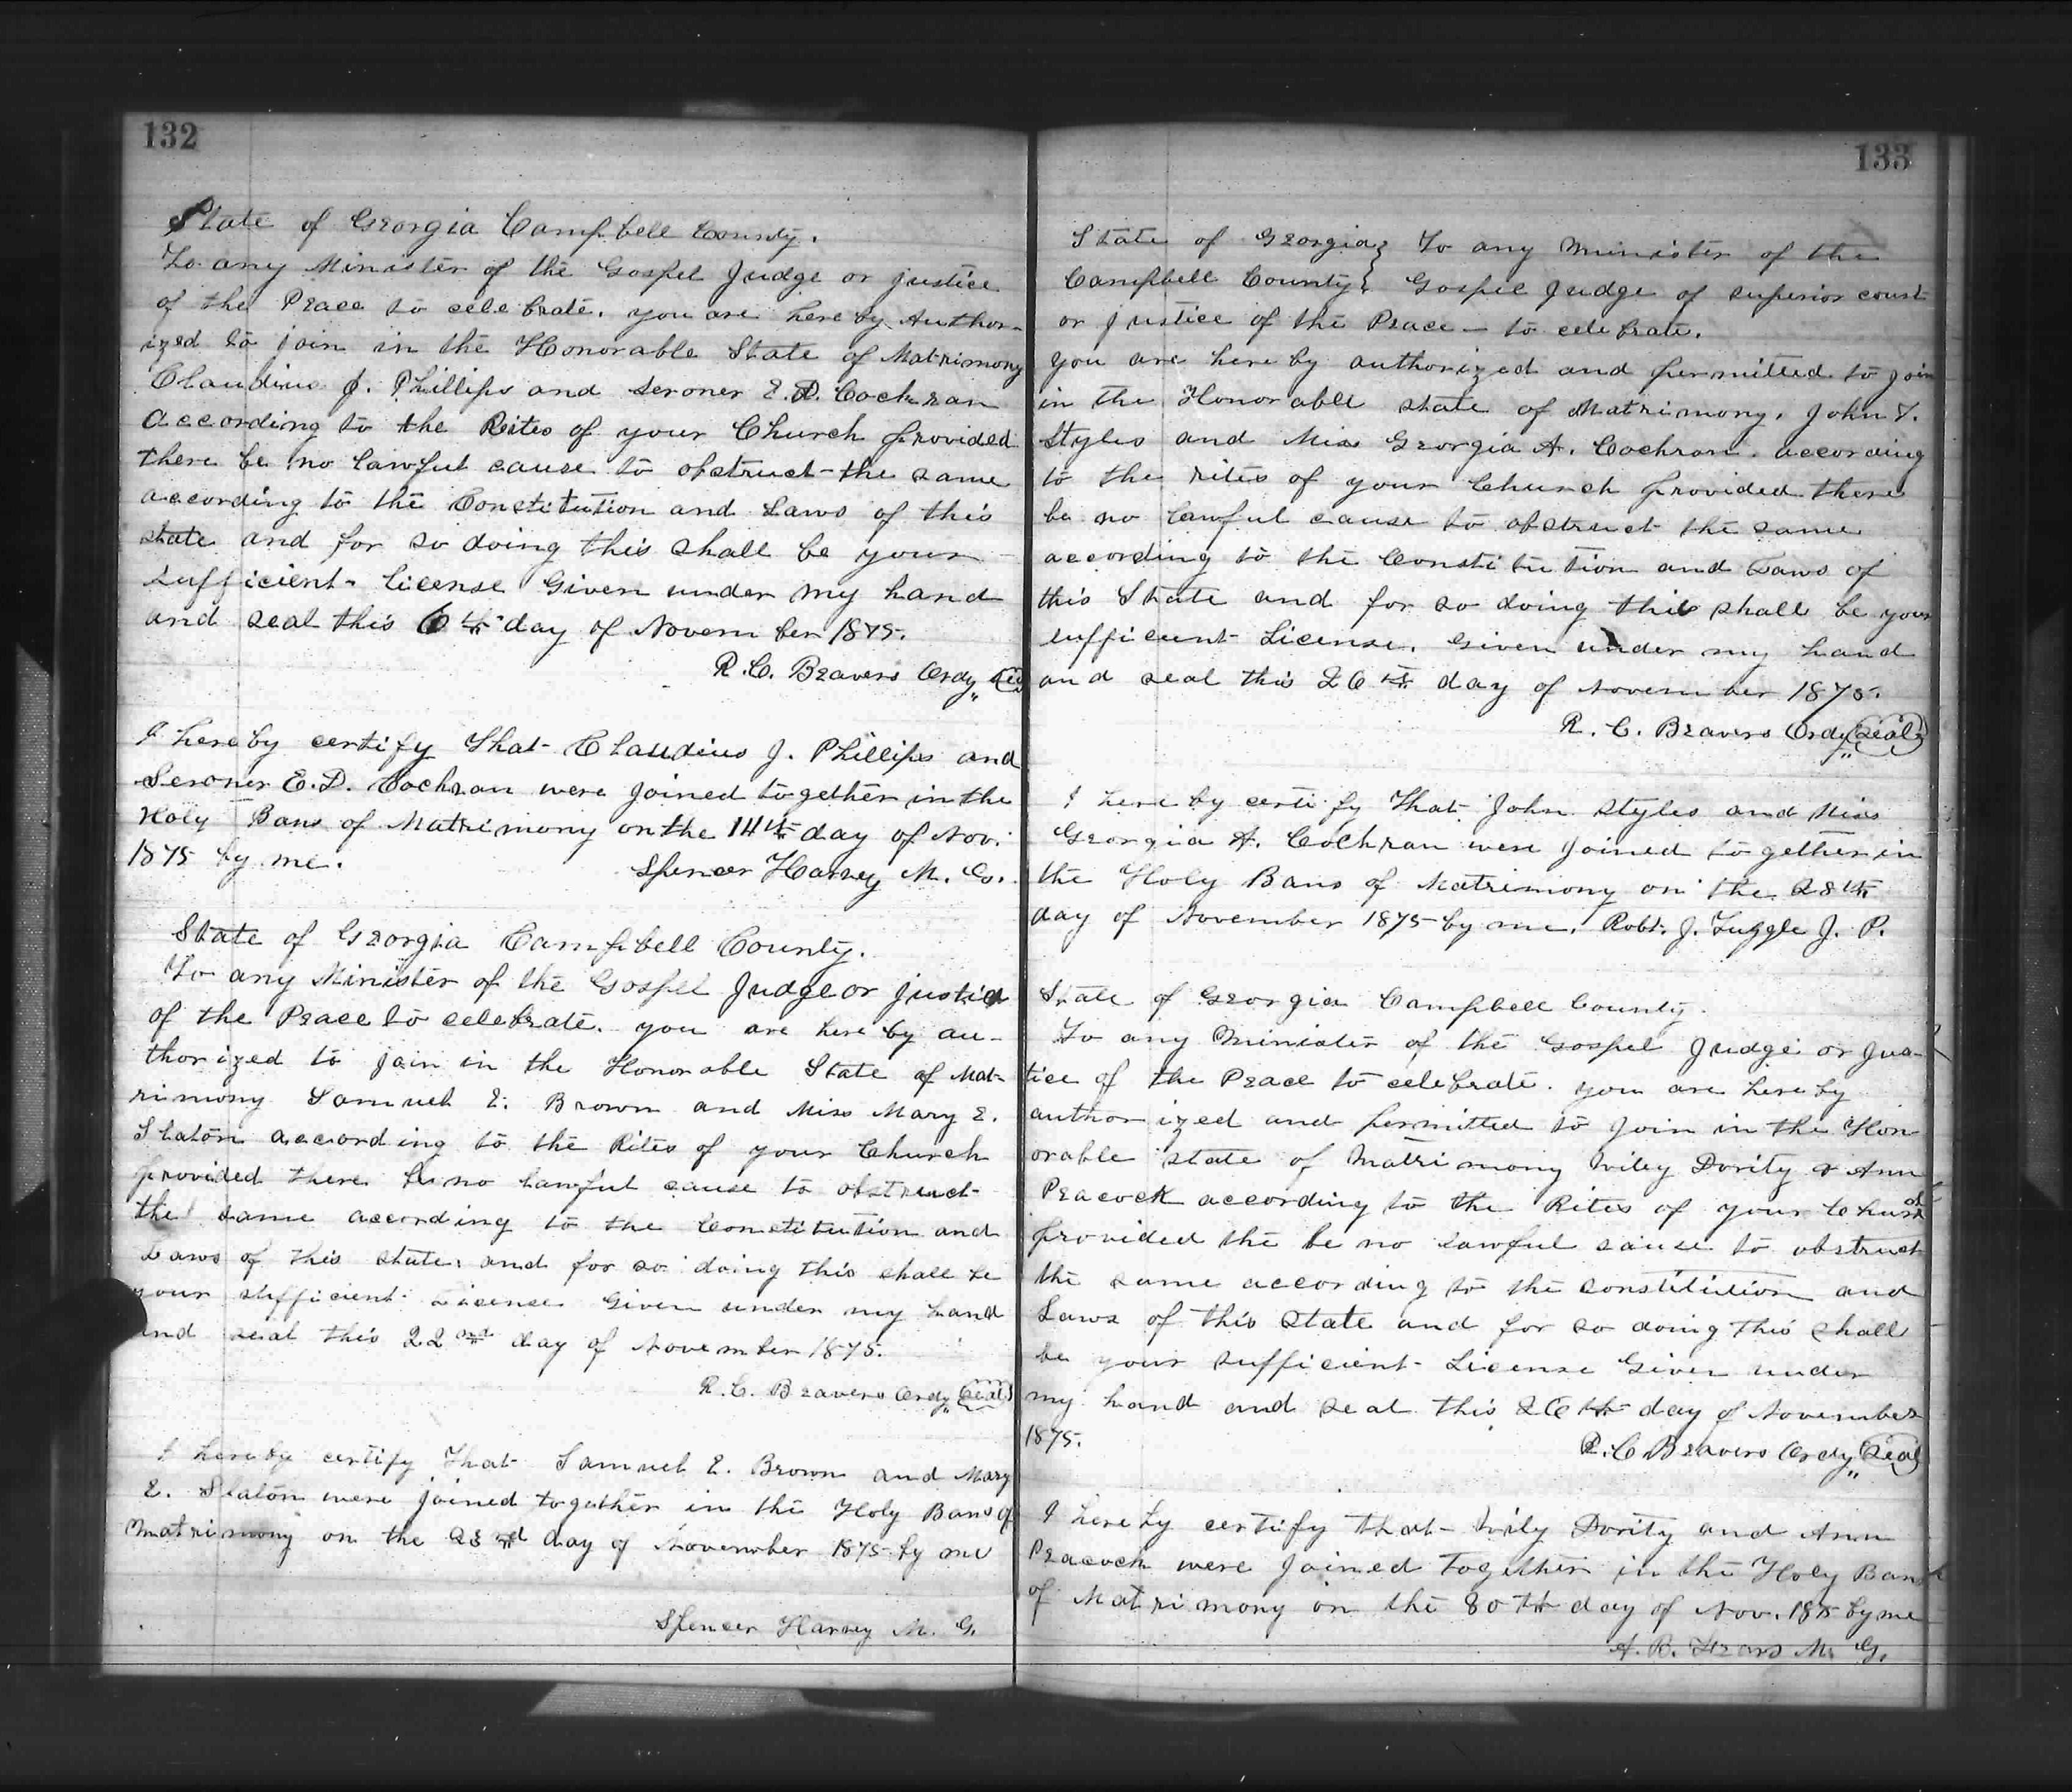 132
State of Georgia Campbell County.
To any Minister of the Gospel Judge or justice
of the Peace to celebrate. you are hereby Author-
ized to join in the Honorable State of Matrimony
Claudius J. Phillips and Seroner E. D. Cochran
According to the Rites of your Church provided
there be no lawful cause to obstruct the same
according to the Constitution and Laws of this
state and for so doing this shall be your
sufficient license Given under my hand
and seal this 6th day of November 1875.
R. C. Beavers Ordy
I hereby certify That Claudius J. Phillips and
Seroner E. D. Cochran were joined together in the
Holy Bans of Matrimony on the 14th day of Nov.
1875 by me.
Spencer Harvey M. G.
State of Georgia Campbell County.
To any Minister of the Gospel Judge or justice
of the Peace to celebrate. you are here by au-
thorized to join in the Honorable State of Mat-
rimony Samuel E. Brown and Miss Mary E.
Slaton according to the Rites of your Church
provided there be no lawful cause to obstruct
the same according to the Constitution and
Laws of this state. and for so doing this shall be
your sufficient License Given under my hand
and seal this 22nd day of November 1875.
R. C. Beavers Ordy Seal
I hereby certify That Samuel E. Brown and Mary
E. Slaton were joined together in the Holy Bans of
Matrimony on the 23rd day of November 1875 by me
Spencer Harvey M. G.
133
State of Georgia } To any Minister of the
Campbell County } Gospel Judge of superior court
or justice of the Peace — to celebrate.
you are here by authorized and permitted to join
in the Honorable state of Matrimony. John T.
Styles and Miss Georgia A. Cochran. according
to the rites of your Church provided there
be no lawful cause to obstruct the same
according to the Constitution and Laws of
this State and for so doing this shall be your
sufficient License. Given under my hand
and seal this 26th day of November 1875.
R. C. Beavers Ordy Seal
I here by certify That John Styles and Miss
Georgia A. Cochran were joined together in
the Holy Bans of Matrimony on the 28th
day of November 1875 by me. Robt. J. Tuggle J. P.
State of Georgia Campbell County.
To any Minister of the Gospel Judge or Jus-
tice of the Peace to celebrate. you are here by
authorized and permitted to join in the Hon
orable state of Matrimony Wiley Dority & Ann
Peacock according to the Rites of your Church
provided the be no lawful cause to obstruct
the same according to the constitution and
Laws of this State and for so doing this shall
be your sufficient License Given under
my hand and seal this 26th day of November
1875.
R. C Beavers Ordy Seal
I here by certify that Wily Dority and Ann
Peacock were joined Together in the Holy Bans
of Matrimony on the 30th day of Nov. 1875 by me
A. B. M. G.